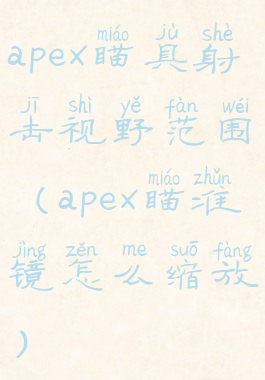 miáo jù shè
apex瞄具射
jī shì yě fàn wéi
击视野范围
miáo zhǔn
(apex瞄准
jìng zěn me suō fàng
镜怎么缩放
)